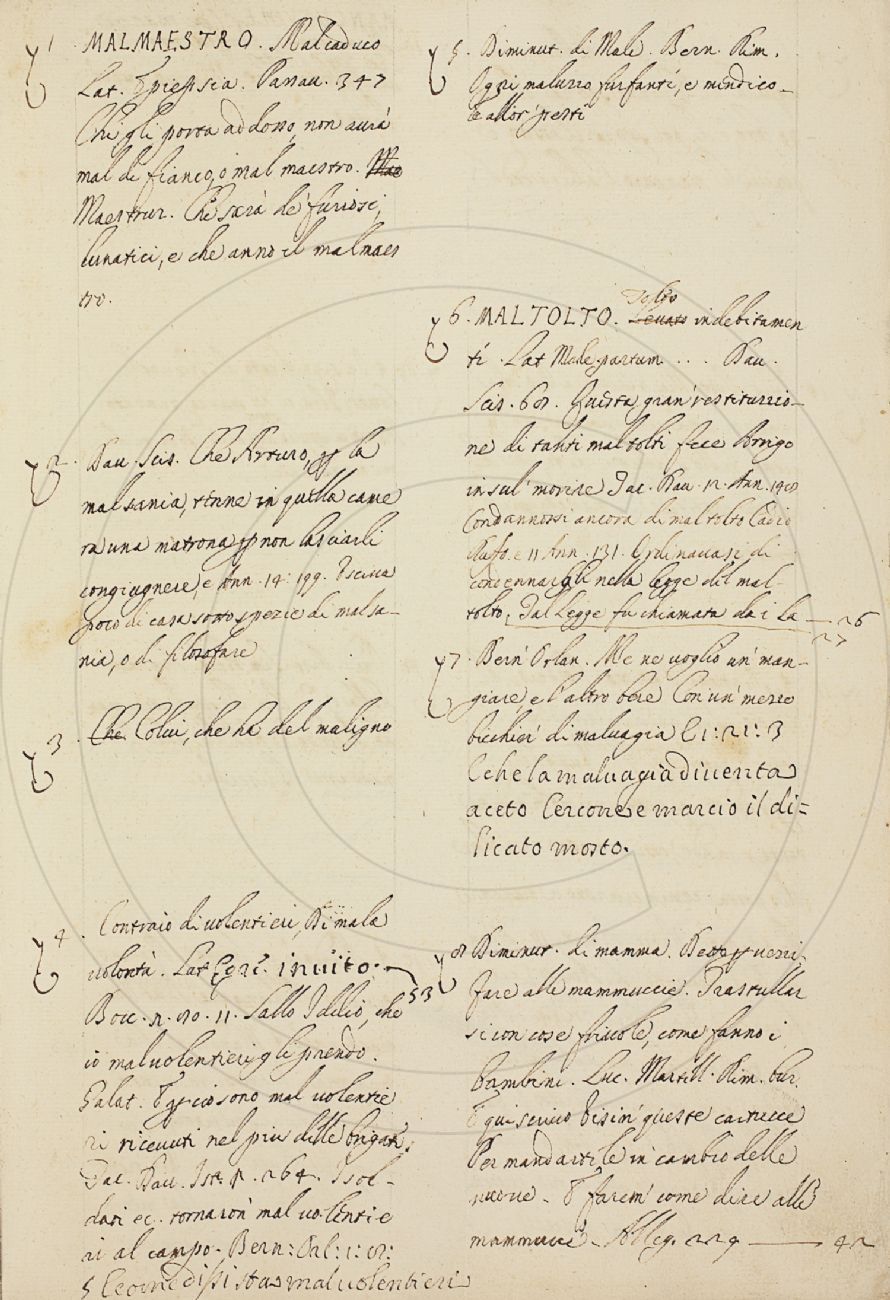 1. MALMAESTRO. Malcaduco
Lat. Epilepsia. Pattav. 347
Chi gli porta addosso, non aurà
mal di fianco, o mal maestro.
Maestruz. Che sarà de' furiosi,
lunatici, e che anno il malmaes
tro.
2. Dav. Scis. Che Arturo, p la
malsania, tenne in quella came
ra una matrona p non lasciarli
congiugnere, e Ann. 14. 199. Usciva
poco di casa sotto spezie di malsa-
nia, o di filosofare
3. Che Colui, che ha del maligno
4. Contraio di volentieri, Di mala
volontà. Lat. Egre. invito.
53
Bocc. n. 90. 11. Sallo Iddio, che
io malvolentieri gli prendo.
Galat. E perciò sono mal volentie
ri ricevuti nel più delle brigate.
Tac. Dav. Ist. 264. I sol-
dati ec. tornaron malvolentie
ri al campo. Bern: Orl: 1: 8:
5 E come dissi stava malvolentieri
5. Diminut. di Male. Bern. Rim.
Ogni maluzzo furfante, e mendico-
è allor peste
Tolto
6. MALTOLTO. Levato indebitamen
te. Lat Male partum . . . Dav.
Scis. 68. Questa gran restituzio-
ne di tanti maltolti fece Arrigo
in sul morire Tac. Dav. 12. Ann. 148
Condannossi ancora di maltolto Cadio
Ruffo. e 11 Ann. 131. Ordinavasi di
condennargli nella legge del mal-
tolto, Tal Legge fu chiamata da i La — 26
27
7. Bern Orlan. Me ne voglio un man-
giare, e l'altro bere Con un mezzo
bicchier di malvagia E 1: 21: 3
E che la malvagia diventa
aceto Cercone e marcio il di=
licato mosto.
8 Diminut. di mamma. Detto p vezzi.
Fare alle mammuccie. Trastullar
si con cose frivole, come fanno i
bambini. Luc. Martell. Rim. bur.
E qui scrivo queste cartucce
Per mandartele in cambio delle
nuove - E farem come dire alle
mammucce - Alleg. 229 — 42